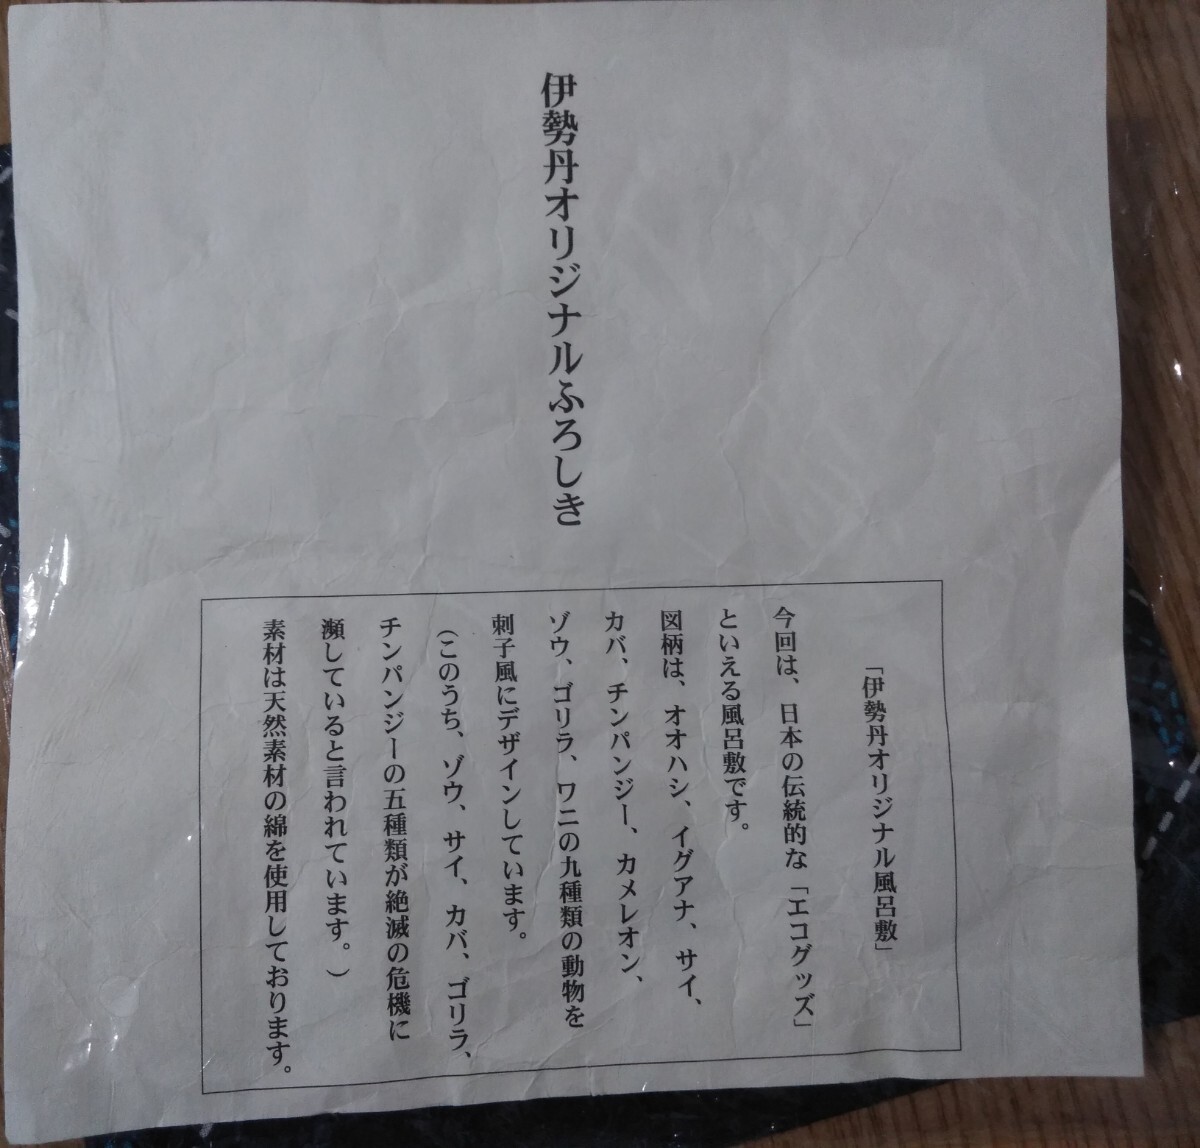 伊勢丹オリジナルふろしき
「伊勢丹オリジナル風呂敷」
今回は、日本の伝統的な「エコグッズ」
といえる風呂敷です。
図柄は、オオハシ、イグアナ、サイ、
カバ、チンパンジー、カメレオン、
ゾウ、ゴリラ、ワニの九種類の動物を
刺子風にデザインしています。
(このうち、ゾウ、サイ、カバ、ゴリラ、
チンパンジーの五種類が絶滅の危機に
瀕していると言われています。)
素材は天然素材の綿を使用しております。